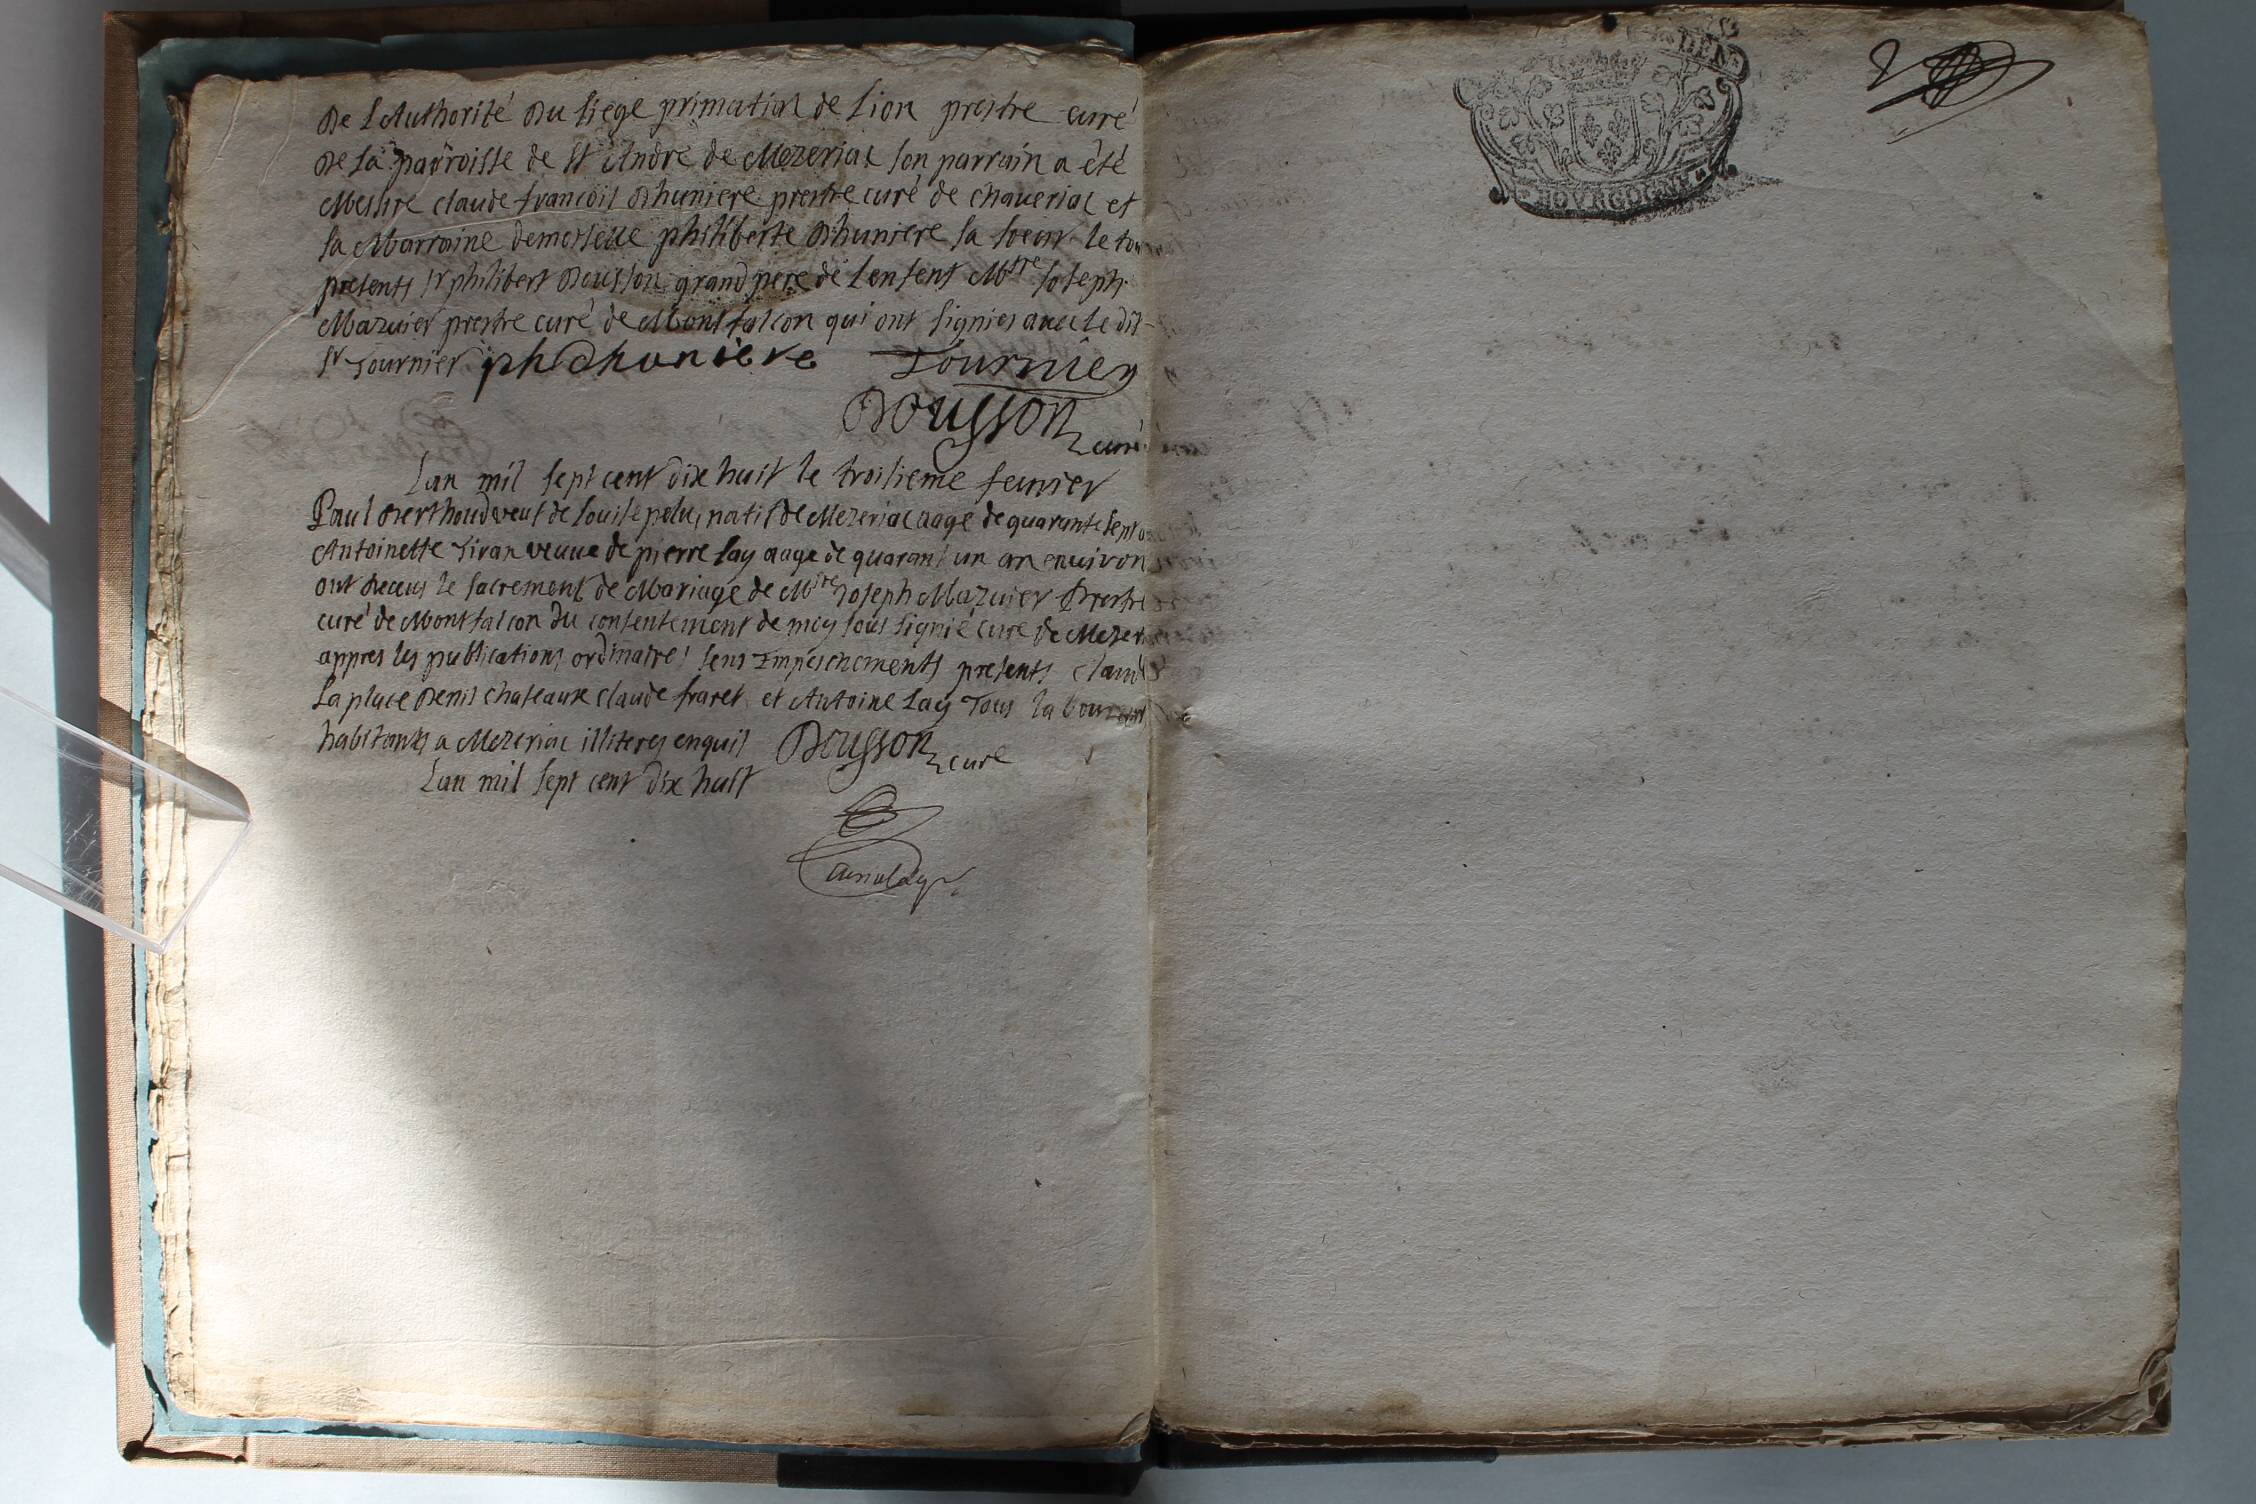 De L'Authorité Du siege primatial de Lion prestre curé
De la parroisse de St André de Mezeriac son parrain a èté
Messire claude francois Dhuniere prestre curé de chaveriac et
sa Marraine demoiselle philiberte Dhuniere sa soeur le tou
presents sr philibert Dousson grand pere de L'enfent Mtre Joseph
Mazuier prestre curé de Montfalcon qui ont signies avec le dit
sr Tournier phDhuniere Tournier
Dousson curé
Lan mil sept cent dix huit le troisieme fevrier
Paul Berthoud veuf de Louise pelu, natif de Mezeriac aagé de quarante sept a
Antoinette Tiran veuve de pierre Lay aage de quarant un an environ
ont Receus le sacrement de Mariage de Mtre Joseph Mazuier Prestre
curé de Montfalcon du consentement de moy sous signié curé de Mezer
appres les publications ordinaires sens Impeschements presents claud
La place Denis chateaux claude fraret et Antoine Lay Tous laboureurs
habitants a Mezeriac illiteres enquis Dousson curé
Lan mil sept cent dix huit
2
BOVRGOGNE